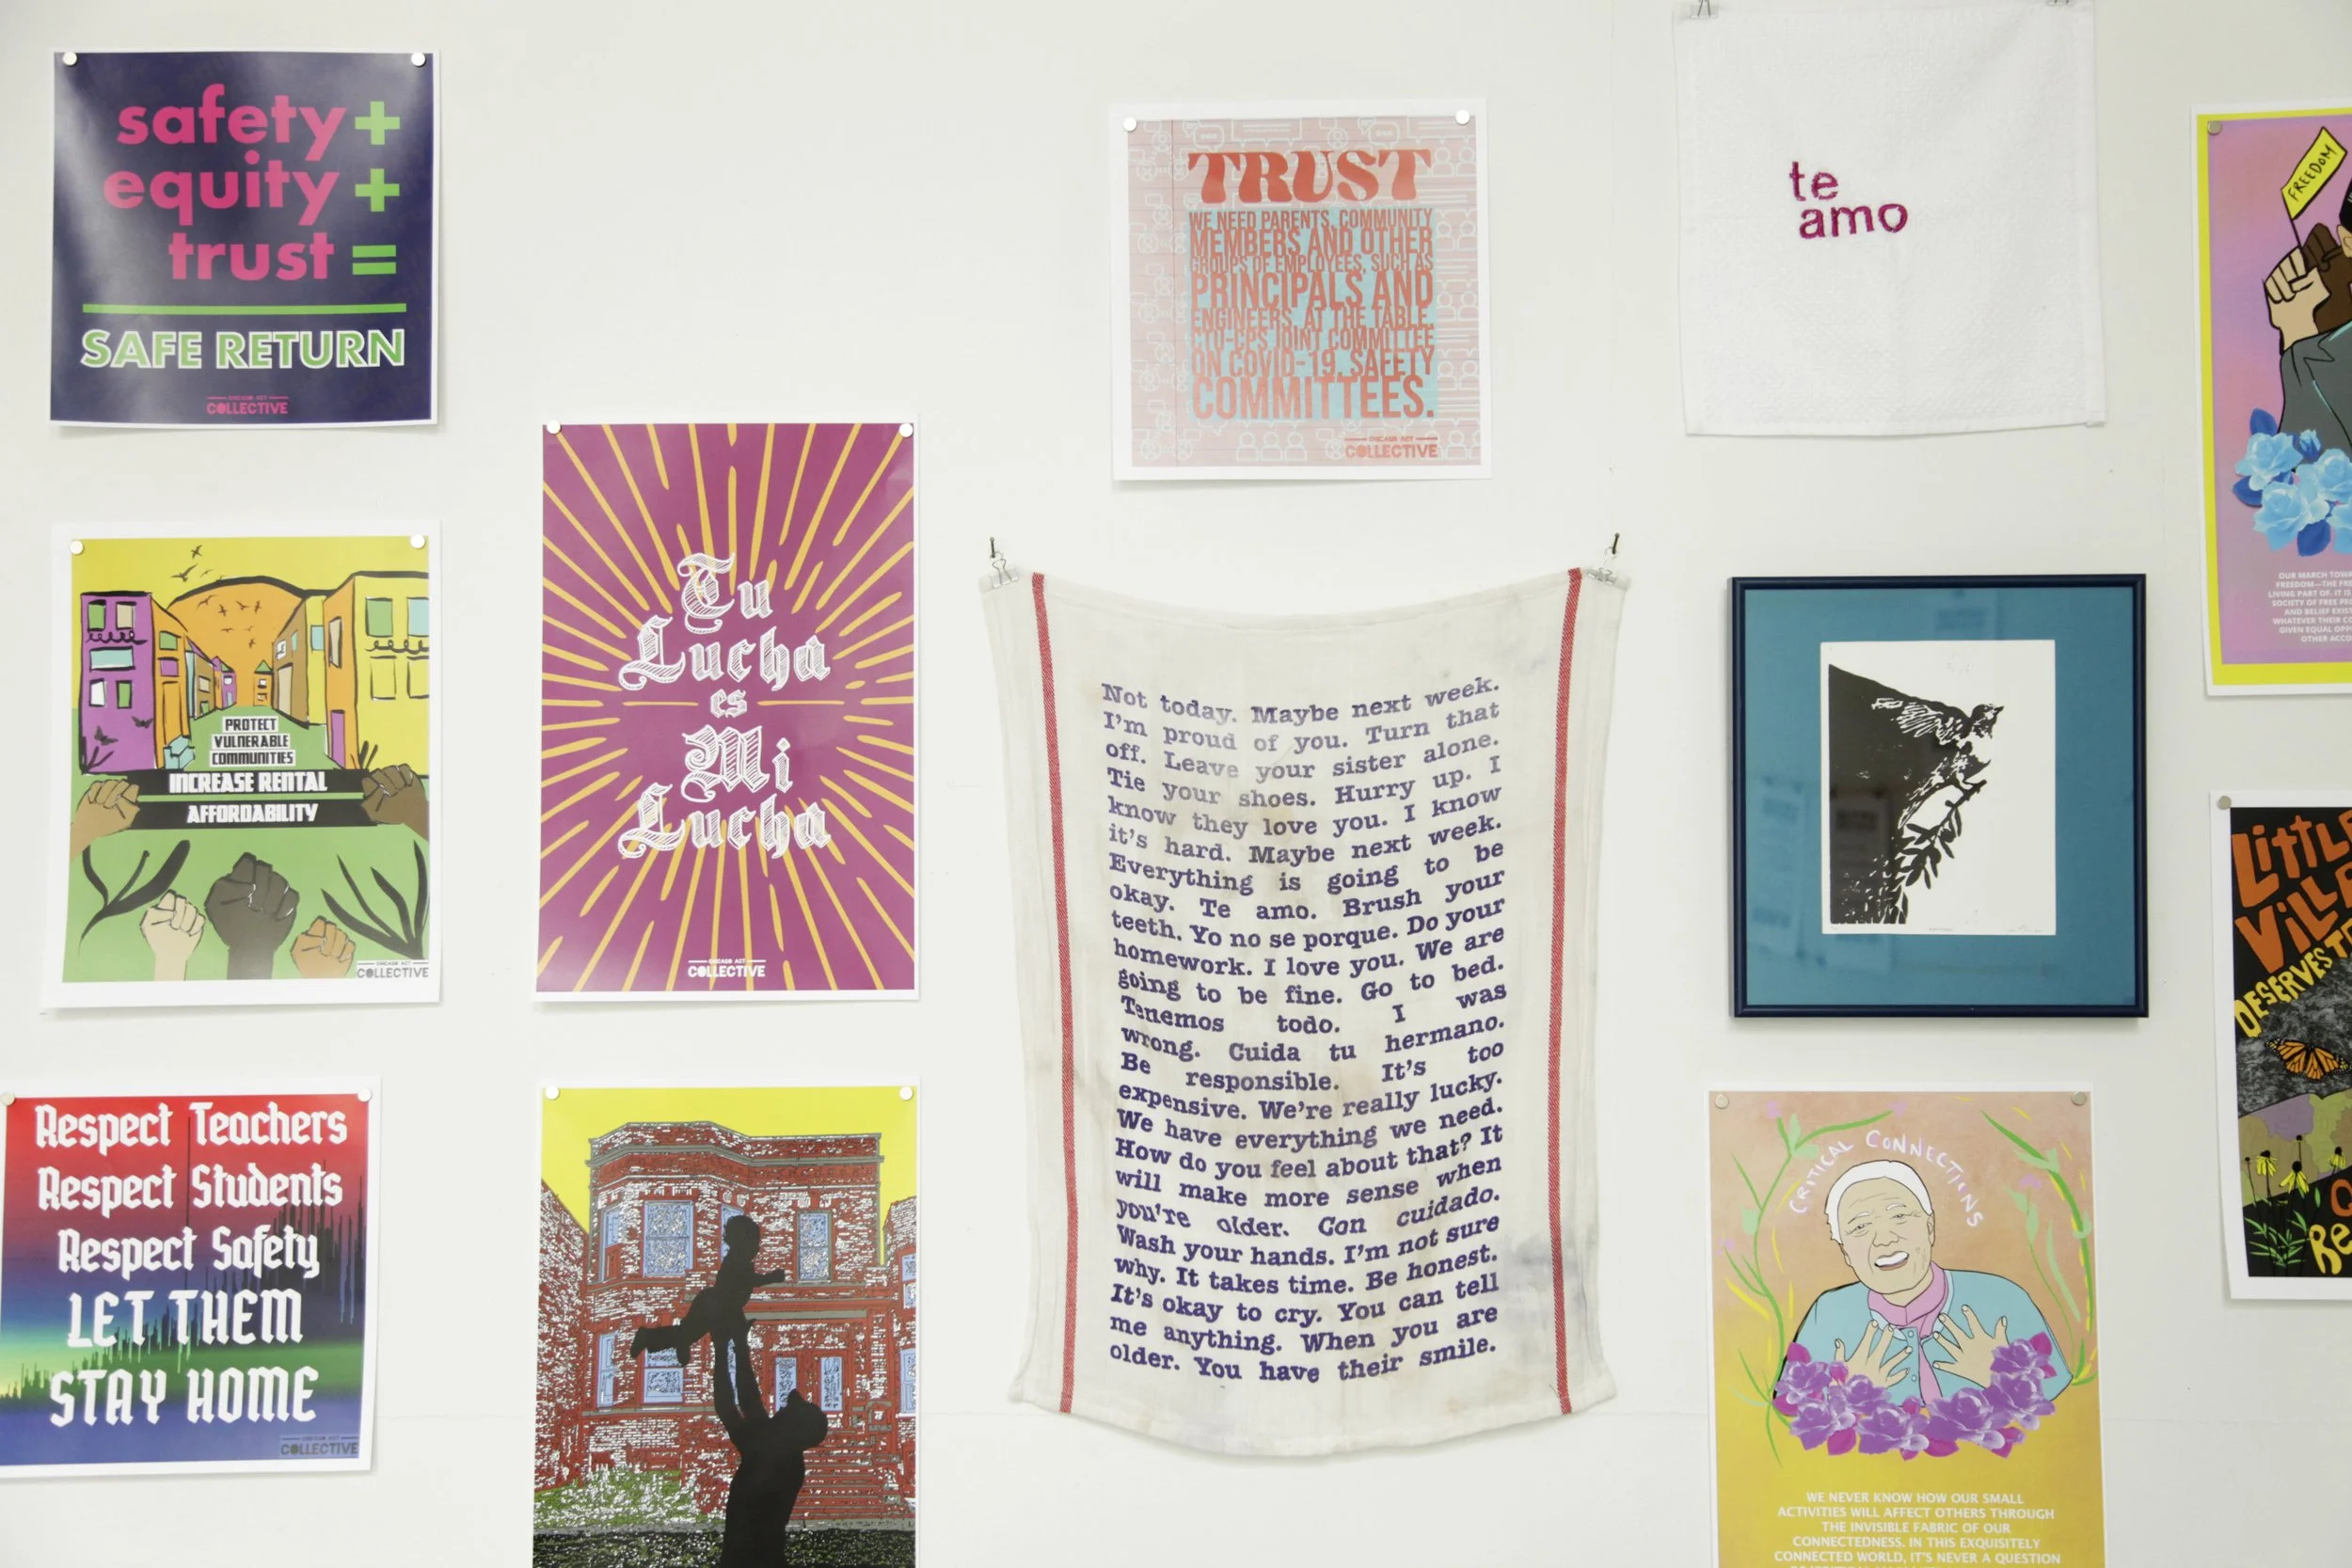 safety +
equity +
trust =
SAFE RETURN
CHICAGO ACT
COLLECTIVE
PROTECT
VULNERABLE
COMMUNITIES
INCREASE RENTAL
AFFORDABILITY
CHICAGO ACT
COLLECTIVE
Respect Teachers
Respect Students
Respect Safety
LET THEM
STAY HOME
COLLECTIVE
Tu
Lucha
es
Mi
Lucha
CHICAGO ACT
COLLECTIVE
TRUST
WE NEED PARENTS, COMMUNITY
MEMBERS AND OTHER
GROUPS OF EMPLOYEES, SUCH AS
PRINCIPALS AND
ENGINEERS, AT THE TABLE.
CTU-CPS JOINT COMMITTEE
ON COVID-19. SAFETY
COMMITTEES.
CHICAGO ACT
COLLECTIVE
Not today. Maybe next week.
I'm proud of you. Turn that
off. Leave your sister alone.
Tie your shoes. Hurry up. I
know they love you. I know
it's hard. Maybe next week.
Everything is going to be
okay. Te amo. Brush your
teeth. Yo no se porque. Do your
homework. I love you. We are
going to be fine. Go to bed.
Tenemos todo. I was
wrong. Cuida tu hermano.
Be responsible. It's too
expensive. We're really lucky.
We have everything we need.
How do you feel about that? It
will make more sense when
you're older. Con cuidado.
Wash your hands. I'm not sure
why. It takes time. Be honest.
It's okay to cry. You can tell
me anything. When you are
older. You have their smile.
te
amo
CRITICAL CONNECTIONS
WE NEVER KNOW HOW OUR SMALL
ACTIVITIES WILL AFFECT OTHERS THROUGH
THE INVISIBLE FABRIC OF OUR
CONNECTEDNESS. IN THIS EXQUISITELY
CONNECTED WORLD, IT'S NEVER A QUESTION
FREEDOM
OUR MARCH
FREEDOM—THE
LIVING PART OF. IT IS
SOCIETY OF FREE
AND BELIEF
WHATEVER THEIR
GIVEN EQUAL
OTHER
DESERVES